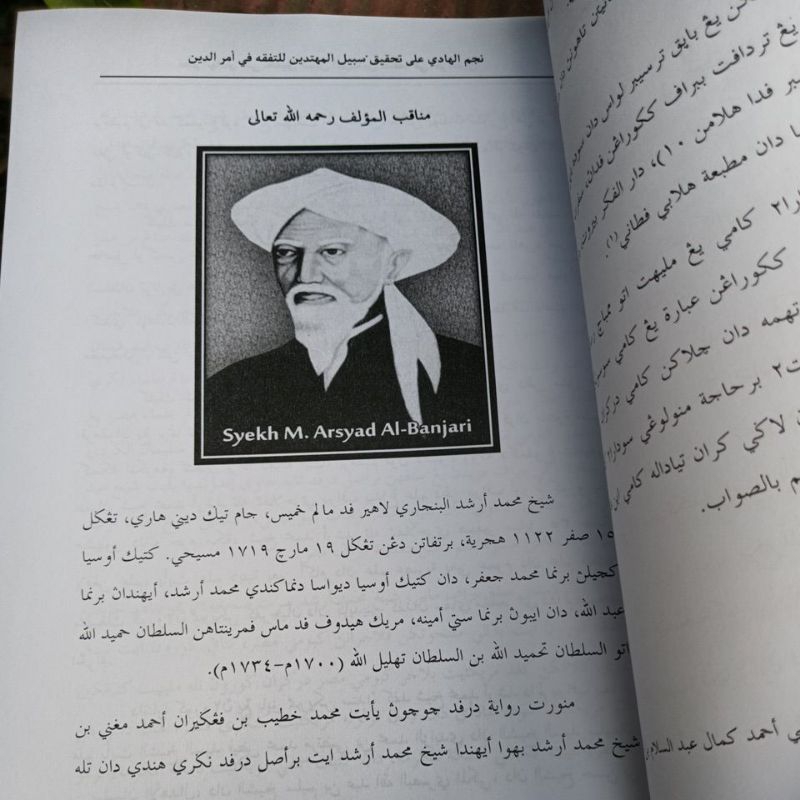 نجم الهادي على تحقيق سبيل المهتدين للتفقه في أمر الدين
مناقب المؤلف رحمه الله تعالى
Syekh M. Arsyad Al-Banjari
شيخ محمد أرشد البنجاري لاهير فد مالم خميس، جام تيك ديني هاري، تڠݢل
١٥ صفر ١١٢٢ هجرية، برتفاتن دڠن تڠݢل ١٩ مارچ ١٧١٩ مسيحي. كتيك أوسيا
كچيلڽ برنما محمد جعفر، دان كتيك أوسيا ديواسا دنماكندي محمد أرشد، أيهنداڽ برنما
عبد الله، دان ايبوڽ برنما ستي أمينه، مريك هيدوف فد ماس فمرينتاهن السلطان حميد الله
اتو السلطان تحميد الله بن السلطان تهليل الله (١٧٠٠م-١٧٣٤م).
منورت رواية درفد جوجوڽ يأيت محمد خطيب بن فڠݢيران أحمد مغني بن
شيخ محمد أرشد بهوا أيهندا شيخ محمد أرشد ايت برأصل درفد نݢري هندي دان تله
يڠ بايق ترسيبر لواس دان
يڠ تردافت ببراف ككوراڠن فدان
فدا هلامن ١٠)، دار الفكر بيروت
دان مطبعة هلابي فطاني (١).
كامي يڠ مليهت اتو ممباچ
ككوراڠن عبارة يڠ كامي
تهمه دان جلاكن كامي
برحاجة منولوڠي سودارا٢
لاݢي كران تياداله كامي
بالصواب.
أحمد كمال عبد السلام